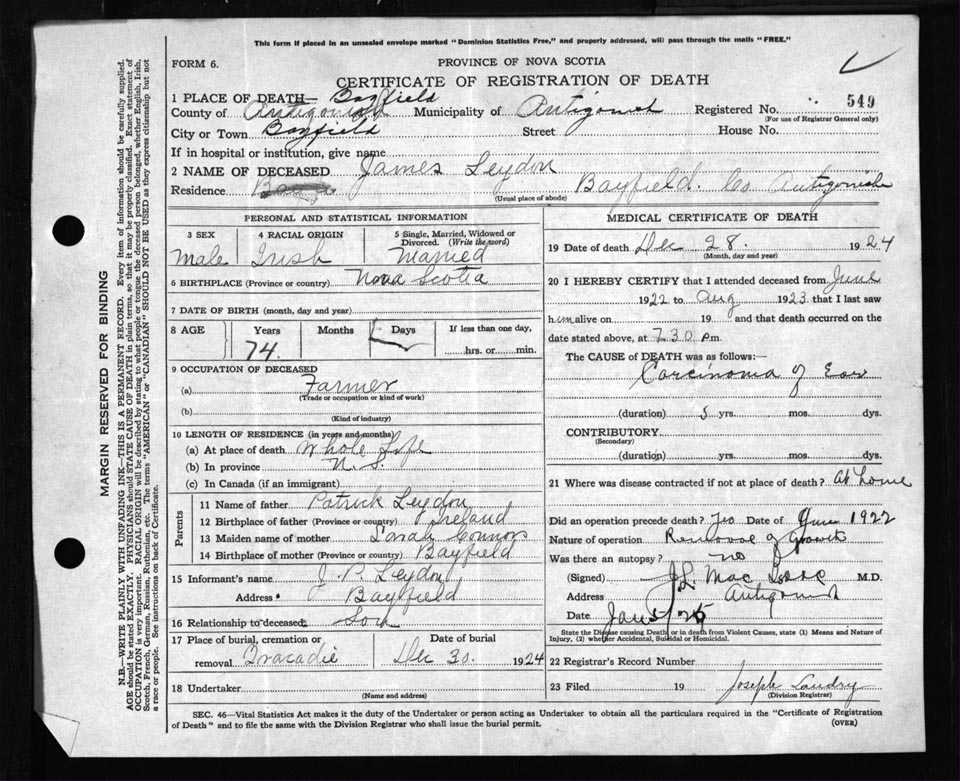 This form if placed in an unsealed envelope marked "Dominion Statistics Free," and properly addressed, will pass through the mails "FREE."
FORM 6.
PROVINCE OF NOVA SCOTIA
CERTIFICATE OF REGISTRATION OF DEATH
1 PLACE OF DEATH— Bayfield
County of Antigonish Municipality of Antigonish Registered No. 549
(For use of Registrar General only)
City or Town Bayfield Street House No.
If in hospital or institution, give name
2 NAME OF DECEASED James Leydon
Residence Bayfield. Co Antigonish
(Usual place of abode)
PERSONAL AND STATISTICAL INFORMATION
3 SEX 4 RACIAL ORIGIN 5 Single, Married, Widowed or Divorced. (Write the word)
Male Irish Married
6 BIRTHPLACE (Province or country) Nova Scotia
7 DATE OF BIRTH (month, day and year)
8 AGE Years Months Days If less than one day,
74. hrs. or min.
9 OCCUPATION OF DECEASED
(a) Farmer
(Trade or occupation or kind of work)
(b)
(Kind of industry)
10 LENGTH OF RESIDENCE (in years and months)
(a) At place of death Whole Life
(b) In province N. S.
(c) In Canada (if an immigrant)
Parents
11 Name of father Patrick Leydon
12 Birthplace of father (Province or country) Ireland
13 Maiden name of mother Sarah Connors
14 Birthplace of mother (Province or country) Bayfield
15 Informant's name J. P. Leydon
Address Bayfield
16 Relationship to deceased Son
17 Place of burial, cremation or removal Tracadie
Date of burial Dec 30. 1924
18 Undertaker
(Name and address)
MEDICAL CERTIFICATE OF DEATH
19 Date of death Dec 28. 1924
(Month, day and year)
20 I HEREBY CERTIFY that I attended deceased from June
1922 to Aug 1923 that I last saw
him alive on 19 and that death occurred on the
date stated above, at 7.30 pm.
The CAUSE OF DEATH was as follows:—
Carcinoma of Ear
(duration) 5 yrs. mos. dys.
CONTRIBUTORY
(Secondary)
(duration) yrs. mos. dys.
21 Where was disease contracted if not at place of death? At home
Did an operation precede death? Yes Date of June 1922
Nature of operation Removal of Growth
Was there an autopsy? no
(Signed) J.L. Mac Isaac M.D.
Address Antigonish
Date Jan 5/25
State the Disease causing Death or in death from Violent Causes, state (1) Means and Nature of
Injury, (2) whether Accidental, Suicidal or Homicidal.
22 Registrar's Record Number
23 Filed 19 Joseph Landry
(Division Registrar)
SEC. 46—Vital Statistics Act makes it the duty of the Undertaker or person acting as Undertaker to obtain all the particulars required in the "Certificate of Registration
of Death" and to file the same with the Division Registrar who shall issue the burial permit.
(OVER)
MARGIN RESERVED FOR BINDING
N.B.—WRITE PLAINLY WITH UNFADING INK—THIS IS A PERMANENT RECORD. Every item of information should be carefully supplied.
AGE should be stated EXACTLY. PHYSICIANS should STATE CAUSE OF DEATH in plain terms, so that it may be properly classified. Exact statement of
OCCUPATION is very important. RACIAL ORIGIN will be described by stating to what people or tongue the deceased person belonged, whether English, Irish,
Scotch, French, German, Russian, Ruthenian, etc. The terms "AMERICAN" or "CANADIAN" SHOULD NOT BE USED as they express citizenship but not
a race or people. See instructions on back of Certificate.